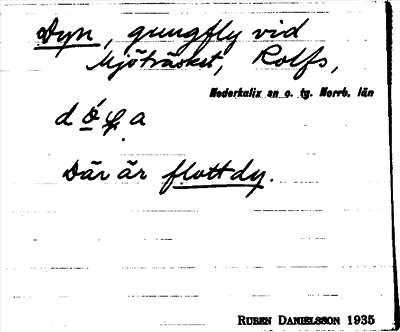 Dyn, gungfly vid
Mjöträsket, Rolfs,
Nederkalix sn o. tg. Norrb. län
Där är flottdy.
RUBEN DANIELSSON 1935